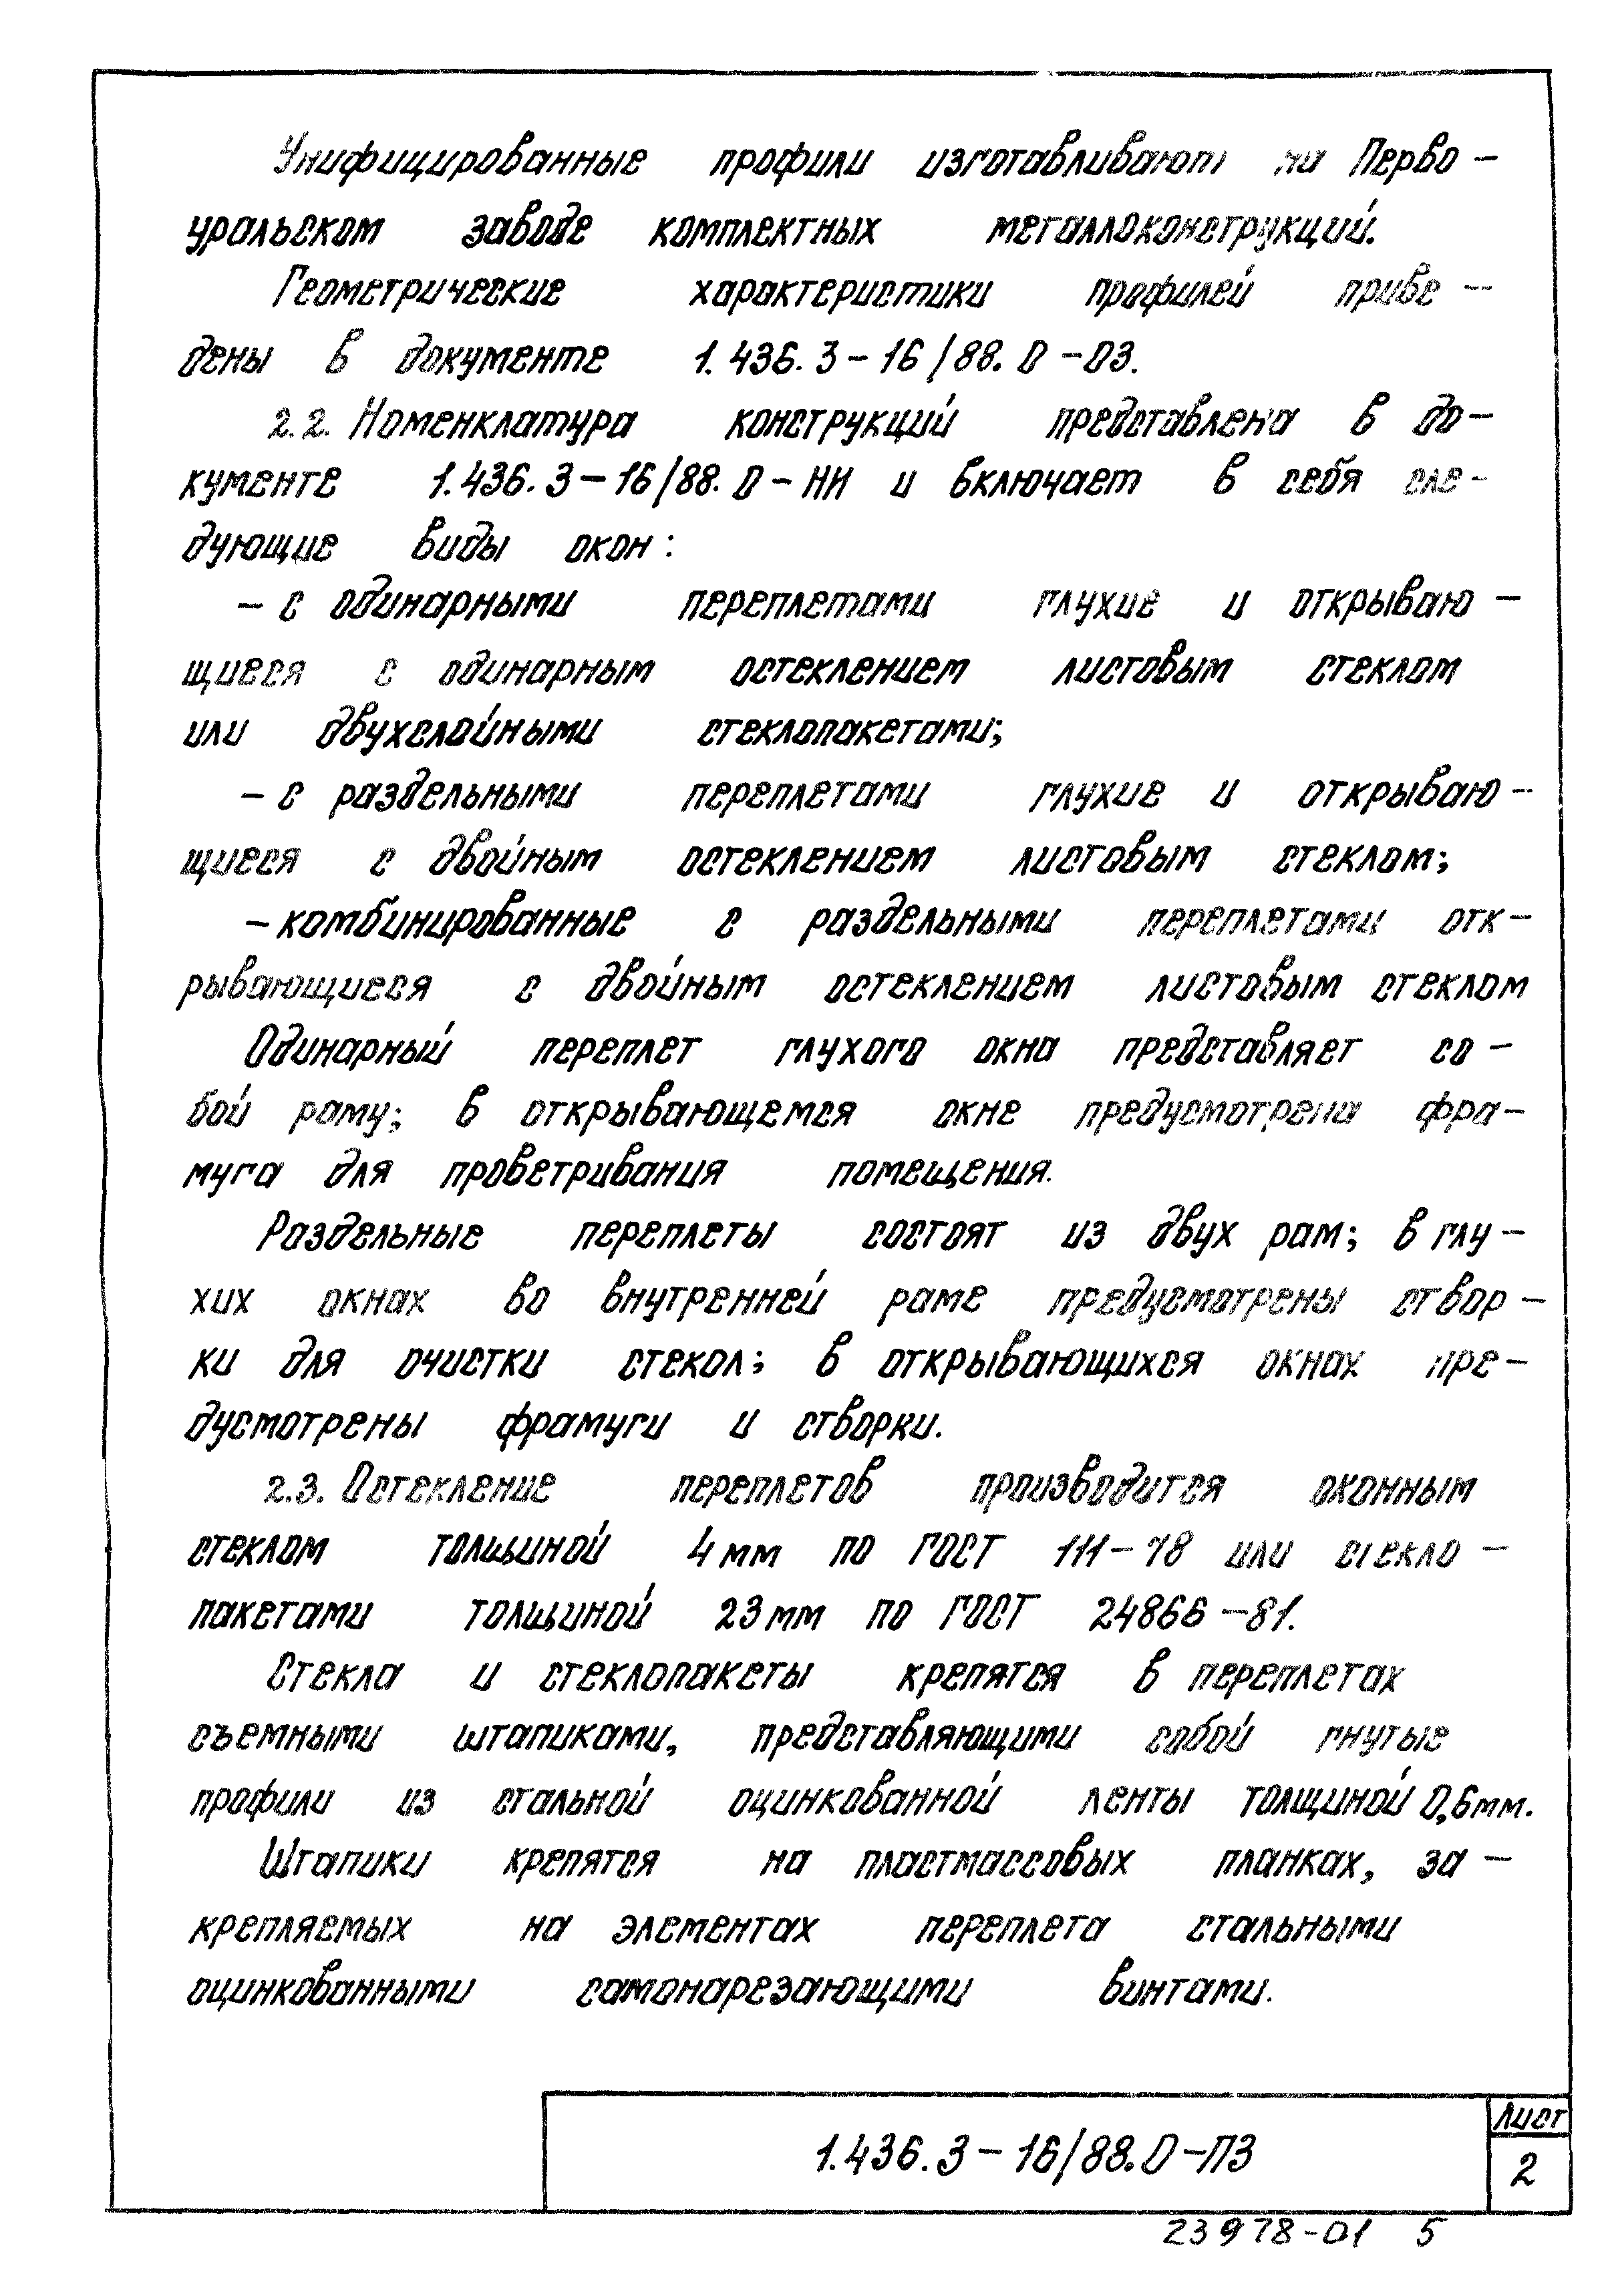 Унифицированные профили изготавливают на Перво-
уральском заводе комплектных металлоконструкций.
Геометрические характеристики профилей приве-
дены в документе 1.436.3-16/88.0-03.
2.2. Номенклатура конструкций представлена в до-
кументе 1.436.3-16/88.0-НИ и включает в себя сле-
дующие виды окон:
- с одинарными переплетами глухие и открываю-
щиеся с одинарным остеклением листовым стеклом
или двухслойными стеклопакетами;
- с раздельными переплетами глухие и открываю-
щиеся с двойным остеклением листовым стеклом;
- комбинированные с раздельными переплетами отк-
рывающиеся с двойным остеклением листовым стеклом
Одинарный переплет глухого окна представляет со-
бой раму; в открывающемся окне предусмотрена фра-
муга для проветривания помещения.
Раздельные переплеты состоят из двух рам; в глу-
хих окнах во внутренней раме предусмотрены створ-
ки для очистки стекол; в открывающихся окнах пре-
дусмотрены фрамуги и створки.
2.3. Остекление переплетов производится оконным
стеклом толщиной 4 мм по ГОСТ 111-78 или стекло-
пакетами толщиной 23 мм по ГОСТ 24866-81.
Стекла и стеклопакеты крепятся в переплетах
съемными штапиками, представляющими собой гнутые
профили из стальной оцинкованной ленты толщиной 0,6 мм.
Штапики крепятся на пластмассовых планках, за-
крепляемых на элементах переплета стальными
оцинкованными самонарезающими винтами.
1.436.3-16/88.0-ПЗ
Лист
2
23978-01 5